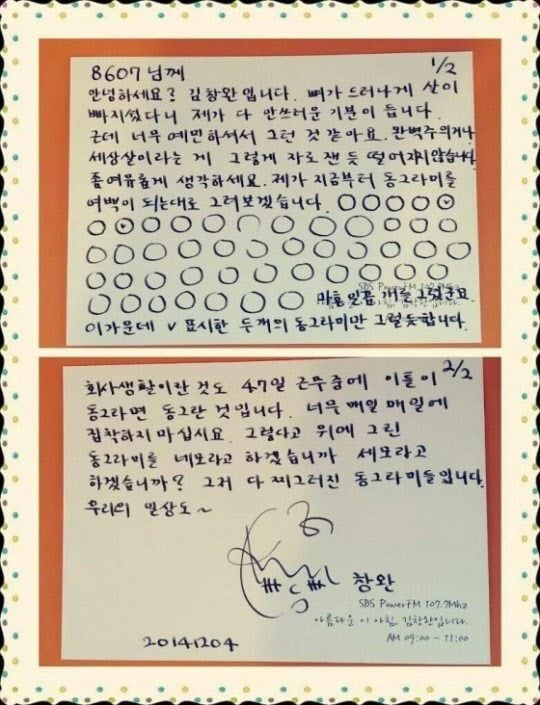 1/2
8607님께
안녕하세요? 김창완입니다. 뼈가 드러나게 살이
빠지셨다니 제가 다 안쓰러운 기분이 듭니다.
근데 너무 예민하셔서 그런 것 같아요. 완벽주의거나
세상살이라는 게 그렇게 자로 잰 듯 떨어지지않습니다
좀 여유롭게 생각하세요. 제가 지금부터 동그라미를
여백이 되는대로 그려보겠습니다.
SBS PowerFM 107.7Mhz
마흔일곱 개를 그렸군요.
이가운데 v 표시한 두개의 동그라미만 그럴듯합니다.
2/2
회사생활이란 것도 47일 근무중에 이틀이
동그라면 동그란 것입니다. 너무 매일 매일에
집착하지 마십시요. 그렇다고 위에 그린
동그라미를 네모라고 하겠습니까 세모라고
하겠습니까? 그저 다 찌그러진 동그라미들입니다.
우리의 일상도~
창완
SBS PowerFM 107.7Mhz
아름다운 이 아침, 김창완입니다.
AM 09:00 - 11:00
20141204